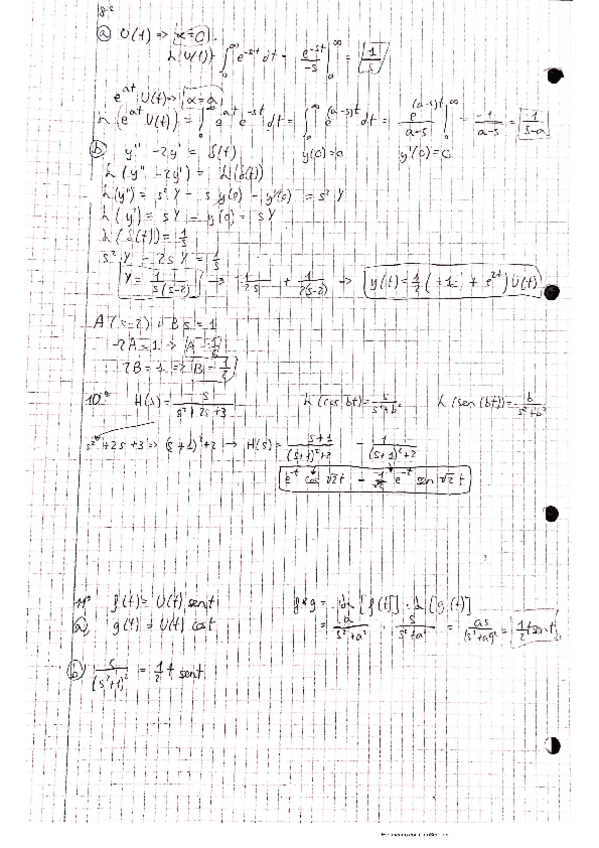 8º
a) U(t) => α=0.
L(U(t)) ∫₀^∞ e^-st dt = e^-st/-s |₀^∞ = 1/s
e^at U(t) => α=a
L(e^at U(t)) = ∫₀^∞ e^at e^-st dt = ∫₀^∞ e^(a-s)t dt = e^(a-s)t/a-s |₀^∞ = -1/a-s = 1/s-a
b) y'' - 2y' = δ(t) y(0)=0 y'(0)=0
L(y'' - 2y') = L(δ(t))
L(y'') = s² Y - s y(0) - y'(0) = s² Y
L(y') = s Y - y(0) = s Y
L(δ(t)) = 1/s
s² Y - 2s Y = 1/s
Y = 1/s(s-2) -> -1/2s + 1/2(s-2) -> y(t) = 1/2 (-1 + e^2t) U(t)
A(s-2) + B s = 1
-2A = 1 ->
2B = 1 => B = 1/2
10º H(s) = s/s²+2s+3 L(cos bt) = s/s²+b² L(sen(bt)) = b/s²+b²
s²+2s+3 => (s+1)²+2 -> H(s) = s+1/(s+1)²+2 - 1/(s+1)²+2
e^-t cos √2 t - 1/√2 e^-t sen √2 t
11º f(t) = U(t) sent f*g = L[f(t)] · L[g(t)]
a) g(t) = U(t) cost = a/s²+a² · s/s²+a² = as/(s²+a²)² = 1/2 t sent
b) s/(s²+1)² = 1/2 t sent